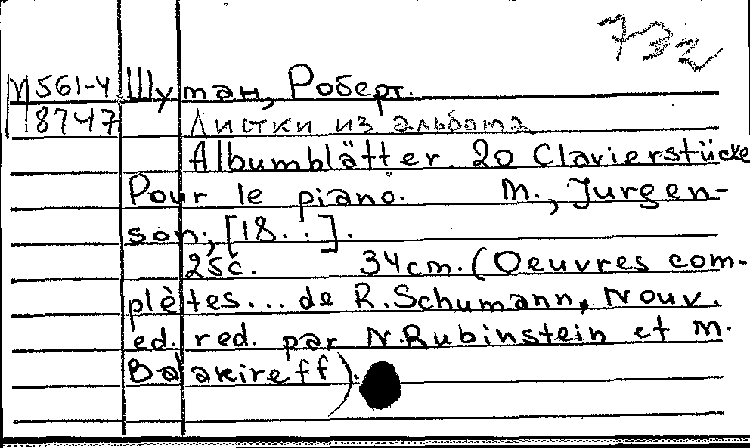 732
М561-4 Шуман, Роберт.
18747 Листки из альбома
Albumblätter. 20 Clavierstücke
Pour le piano. М., Jurgen-
son, [18..].
25с. 34cm. (Oeuvres com-
plètes... de R. Schumann, Nouv.
ed. red. par N. Rubinstein et M.
Balakireff).